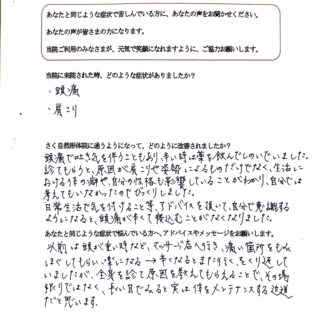 あなたと同じような症状で苦しんでいる方に、あなたの声をお聞かせください。
あなたの声が皆さまの力になります。
当院ご利用のみなさまが、元気で笑顔になれますように、ご協力お願いします。
当院に来院された時、どのような症状がありましたか？
・頭痛
・肩こり
さく自然形体院に通うようになって、どのように改善されましたか？
頭痛で吐き気を伴うこともあり、辛い時は薬を飲んでしのいでいました。
診てもらうと、原因が肩こりや姿勢によるものだけでなく、生活に
おける体の癖や、自分の性格も影響していることがわかり、自分では
考えてもいなかったのでびっくりしました。
日常生活で気を付けること等、アドバイスを頂いて、自分で意識する
ようになると、頭痛が辛くて寝込むことがなくなりました。
あなたと同じような症状で悩んでいる方へ、アドバイスやメッセージをお願いします。
以前は頭が重い時など、マッサージ店へ行き、痛い箇所をもみ
ほぐしてもらい楽になる→辛くなるとまた行く、をくり返して
いましたが、全身を診て原因を教えてもらえることで、その場
限りではなく、長い目でみると実は体をメンテナンスする近道
だと思います。